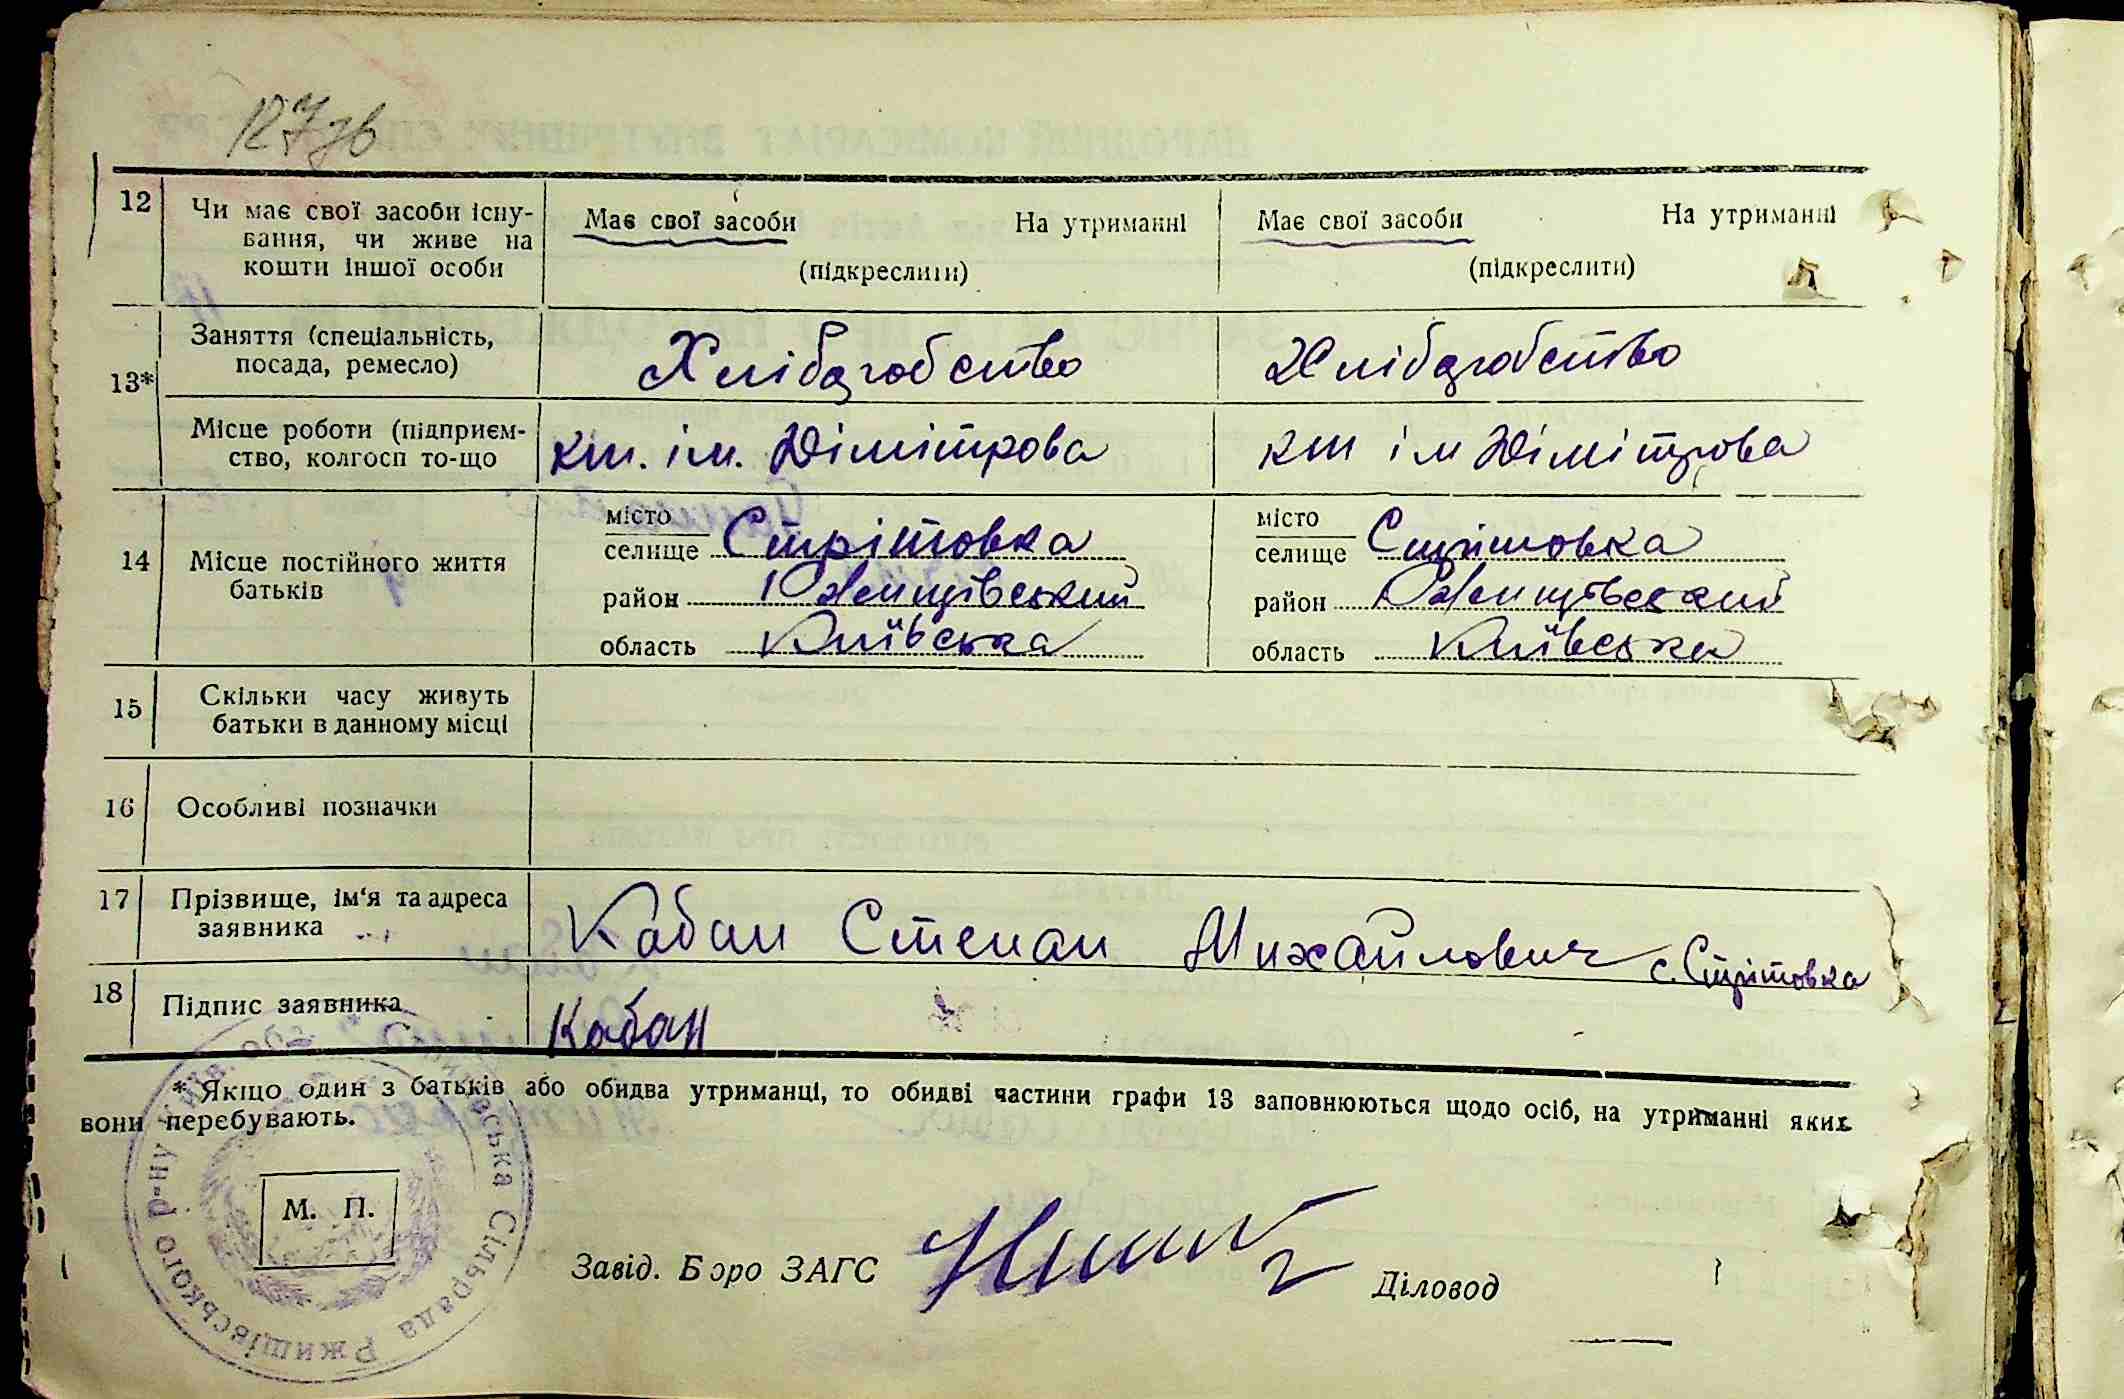 127 зв
12 Чи має свої засоби існу- Має свої засоби На утриманні Має свої засоби На утриманні
вання, чи живе на
кошти іншої особи (підкреслити) (підкреслити)
13* Заняття (спеціальність, Хліборобство Хліборобство
посада, ремесло)
Місце роботи (підприєм- кт. ім. Дімітрова кт ім Дімітрова
ство, колгосп то-що
14 Місце постійного життя батьків
місто
селище Стрітовка
район Ржищівський
область Київська
місто
селище Стрітовка
район Ржищівський
область Київська
15 Скільки часу живуть
батьки в данному місці
16 Особливі позначки
17 Прізвище, ім'я та адреса Кабан Степан Михайлович с. Стрітовка
заявника
18 Підпис заявника Кабан
* Якщо один з батьків або обидва утриманці, то обидві частини графи 13 заповнюються щодо осіб, на утриманні яких
вони перебувають.
М. П.
Сільрада Ржищівського р-ну Київ.
Завід. Бюро ЗАГС Діловод